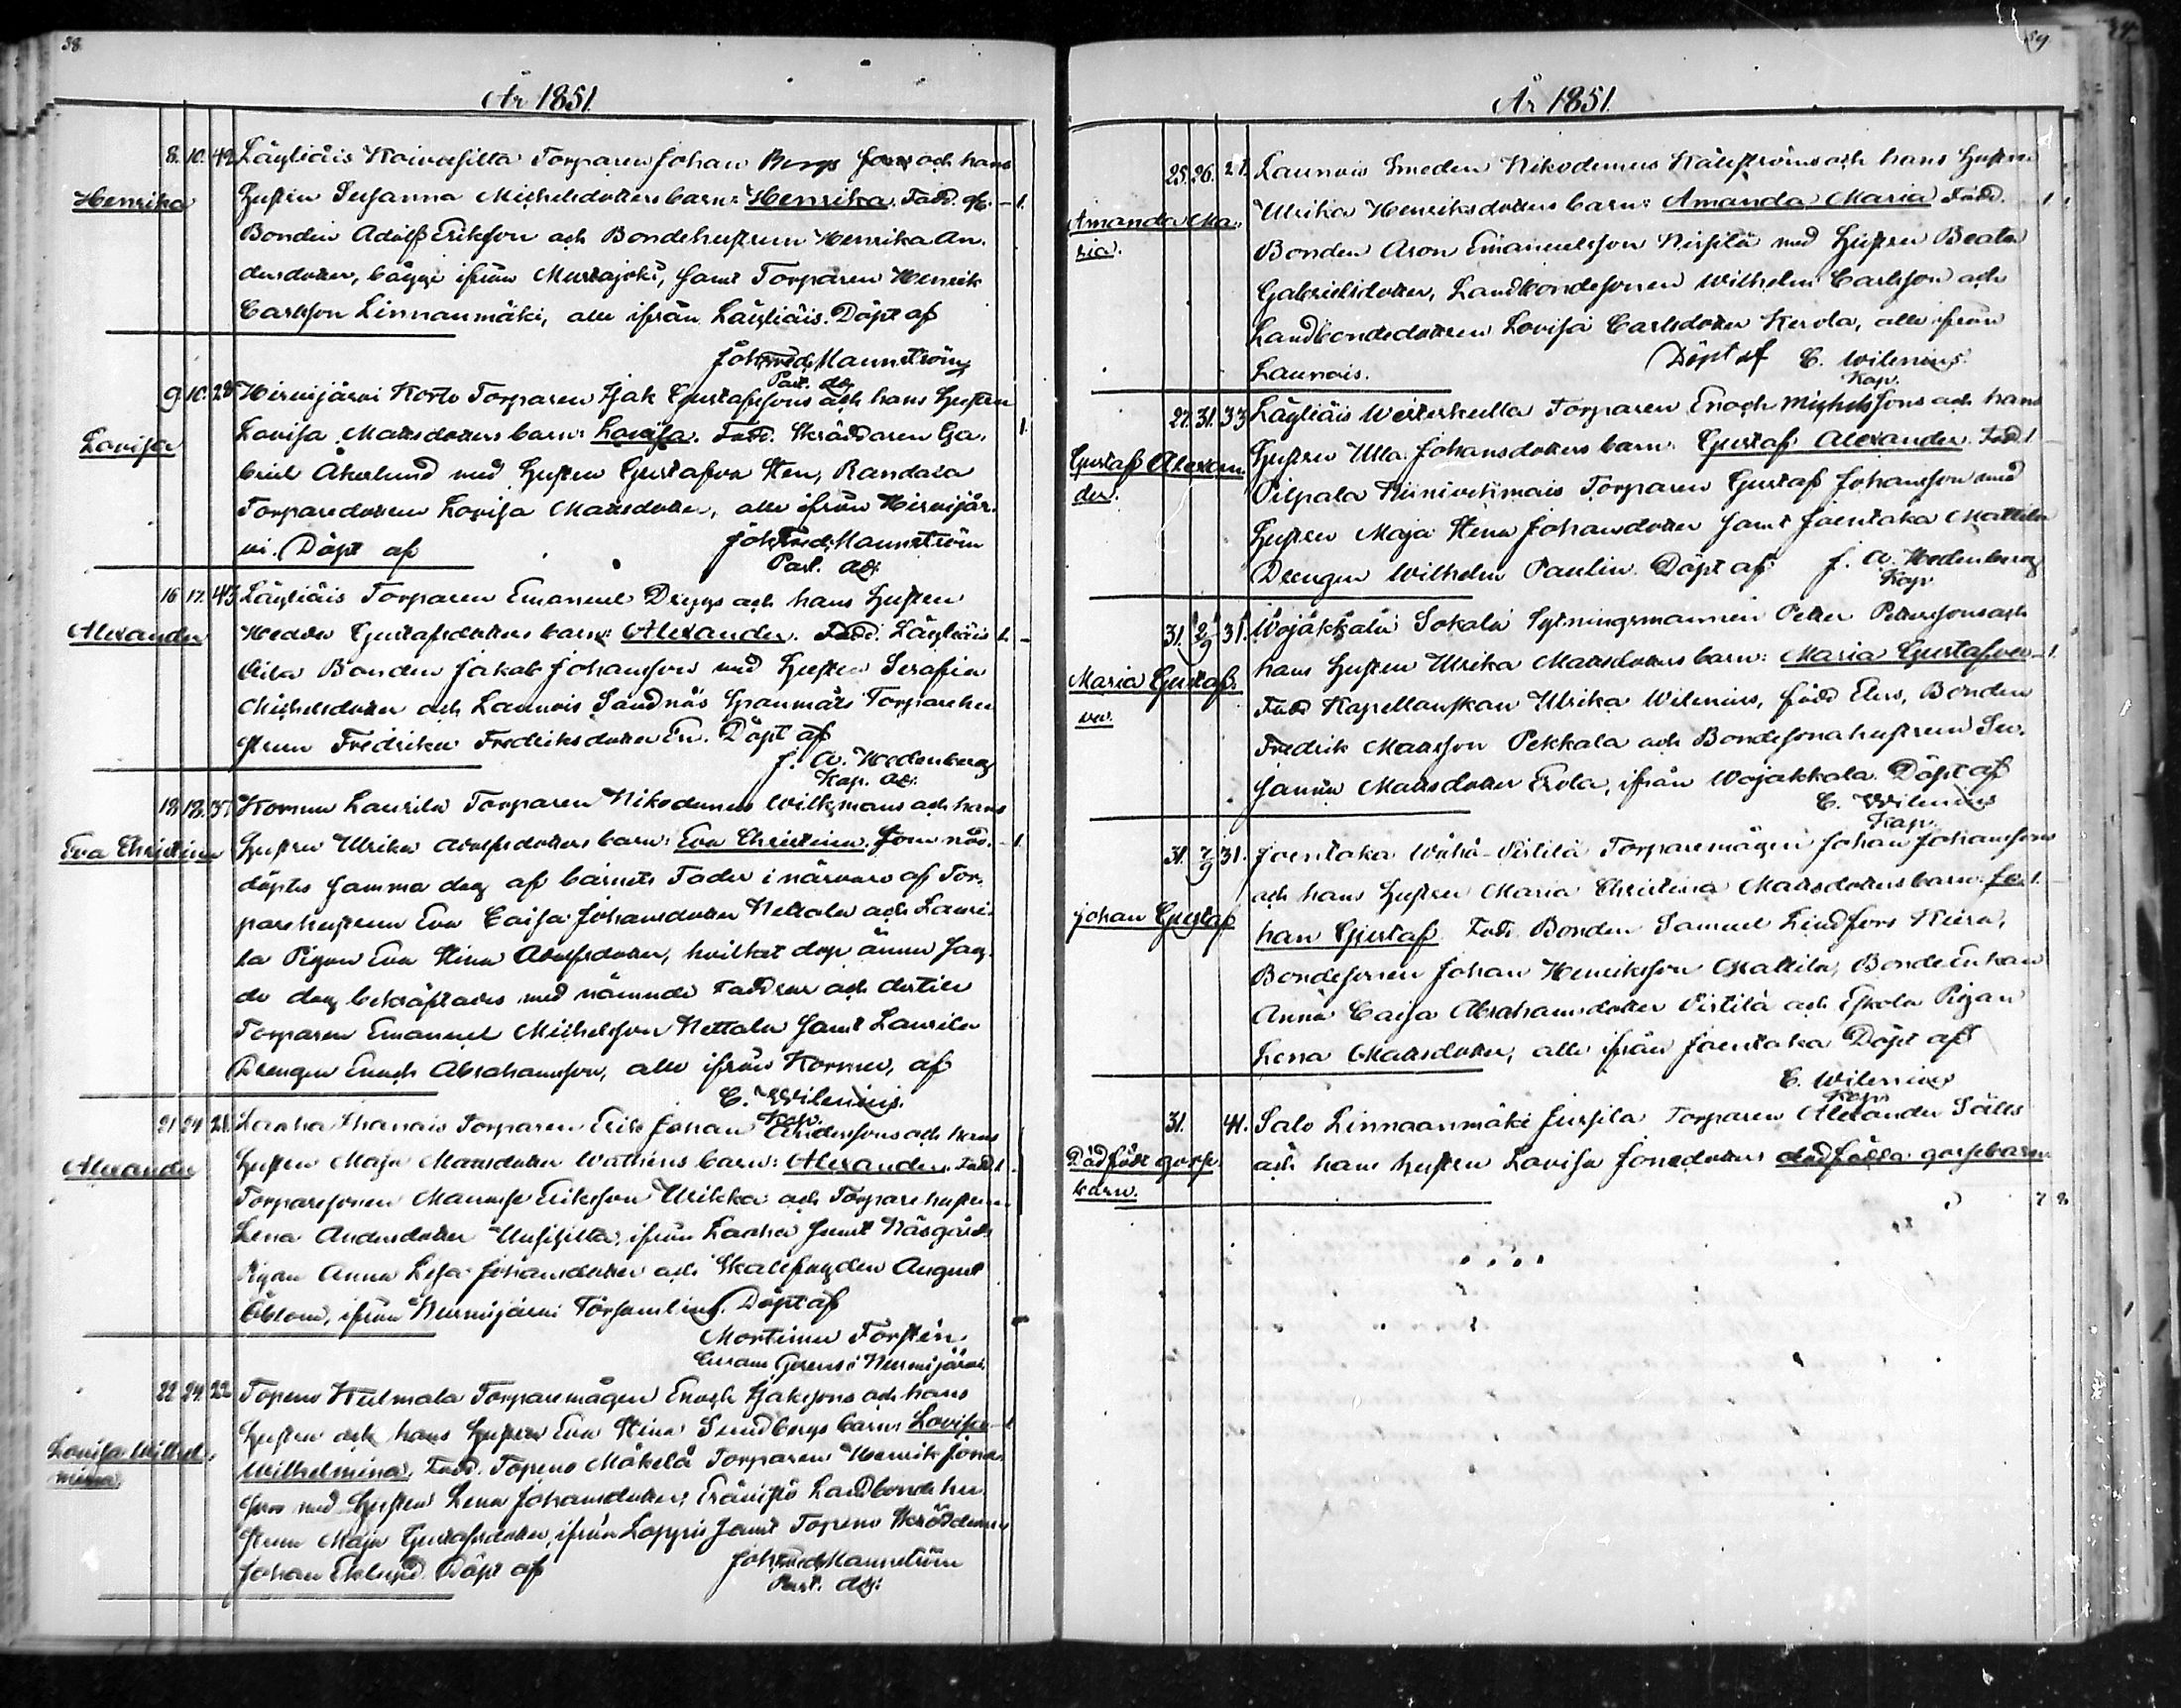 58.
År 1851.
8. 10. 42 Läyliäis Kaivosilta Torparen Johan Bergs och hans
Henrika
Hustru Susanna Michelsdotters barn: Henrika. Fadd. 1.
Bonden Adolf Erikson och Bondehustrun Henrika An-
dersdotter, bägge ifrån Mustajoki, samt Torparen Henrik
Carlsson Linnanmäki, alle ifrån Läyliäis. Döpt af
Joh. Fred. Mannström
Past. adj.
9. 10. 28 Hirvijärvi Korto Torparen Isak Gustafssons och hans Hustru
Lovisa
Lovisa Mattsdotters barn: Lovisa. Fadd. Skräddaren Ga- 1.
briel Åkerlund med Hustru Gustafva Sten, Randala
Torparedottern Lovisa Mattsdotter, alle ifrån Hirvijär-
vi. Döpt af Joh. Fred. Mannström
Past. adj.
16 17. 43 Läyliäis Torparen Emanuel Dreggs och hans Hustru
Alexander
Hedda Gustafsdotters barn: Alexander. Fadd. Läyliäis 1.
Bonden Jakob Johansson med Hustru Serafia
Michelsdotter och Launois Sandnäs Torparehu-
strun Fredrika Fredriksdotter En. Döpt af
J. A. Hedenberg
Kap. adj.
18. 18. 37. Kormu Laurila Torparen Nikodemus Wilkmans och hans
Eva Christina
Hustru Ulrika Adolfsdotters barn: Eva Christina. som nöd- 1.
döptes samma dag af barnets Fader i närvaro af Tor-
parehustrun Eva Caisa Johansdotter Nettala och Lauri-
la Pigan Eva Stina Adolfsdotter, hvilket dop ännu sag-
de dag bekräftades med nämnde Faddrar och dertill
Torparen Emanuel Michelsson Nettala samt Laurila
Drengen Enoch Abrahamsson, alle ifrån Kormu, af
C. Wilenius.
Kap.
21 24 28. Laaha Torparen Erik Johan Anderssons och hans
Alexander
Hustru Maja Mattsdotter Wathéns barn: Alexander. Fadd. 1.
Torparesonen Manasse Eriksson Ukkka och Torparehustrun
Lena Andersdotter Uusisilta, ifrån Laaha samt Näsgårds
Pigan Anna Lisa Johansdotter och Skallfogden August
Öblom, ifrån Nurmijärvi Församling. Döpt af
Mortimer Forstén.
Curam Gerens i Nurmijärvi.
22 24 22 Topeno Kulmala Torparemågen Enoch Isakssons och hans
Lovisa Wilhel-
mina.
Hustru och hans Hustru Eva Stina Sundbergs barn: Lovisa 1
Wilhelmina. Fadd. Topeno Mäkelä Torparen Henrik Jona-
sson med Hustru Lena Johansdotter, Eräviistö Landbonde hu-
strun Maja Gustafsdotter, ifrån Loppis samt Topeno Skräddaren
Johan Eklund. Döpt af Joh. Fred. Mannström
Past. adj.
59.
År 1851.
25. 26. 27. Launois Smeden Nikodemus Källströms och hans Hustru
Amanda Ma-
ria.
Ulrika Henriksdotters barn: Amanda Maria. Fadd. 1.
Bonden Aron Emanuelsson Nirsilä med Hustru Beata
Gabrielsdotter, Landbondesonen Wilhelm Carlsson och
Landbondedottren Lovisa Carlsdotter Kerola, alle ifrån
Launois. Döpt af C. Wilenius
Kap.
27. 31. 33 Läyliäis Westerkulla Torparen Enoch Michelssons och hans
Gustaf Alexan-
der.
Hustru Ulla Johansdotters barn: Gustaf Alexander. Fadd. 1.
Pilpala Torparen Gustaf Johansson med
Hustru Maja Stina Johansdotter samt Joentaka Mattila
Drengen Wilhelm Paulin. Döpt af J. A. Hedenberg
Kap.
31. 2/9 31. Wojakkala Sokala Sytningsmannen Petter Petterssons och
Maria Gustaf-
va.
hans Hustru Ulrika Mattsdotters barn: Maria Gustafva. 1.
Fadd. Kapellanskan Ulrika Wilenius, född Elers, Bonden
Fredrik Mattsson Pekkala och Bondesonahustrun Su-
sanna Mattsdotter Erola, ifrån Wojakkala. Döpt af
C. Wilenius
Kap.
31. 7/9 31. Joentaka Wähä-Virtilä Torparemågen Johan Johanssons
Johan Gustaf
och hans Hustru Maria Christina Mattsdotters barn: Jo- 1.
han Gustaf. Fadd. Bonden Samuel Lindfors Kiera,
Bondesonen Johan Henriksson Mattila, Bonde Enkan
Anna Caisa Abrahamsdotter Virtilä och Eskola Pigan
Lena Mattsdotter, alle ifrån Joentaka Döpt af
C. Wilenius
Kap.
31. 41. Salo Linnaanmäki Jursila Torparen Alexander Sälls
Dödfödt gosse-
barn.
och hans hustru Lovisa Jonasdotters dödfödda gossebarn.
7 8.